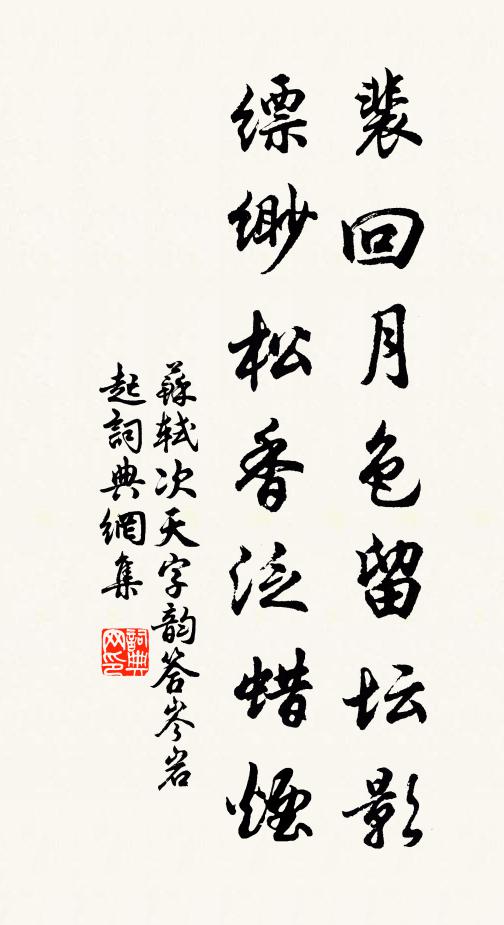 裴回月色留坛影
缥缈松香泛蜡煙
蘇軾次天字韵答岑岩
起詞典網集
詞典网印